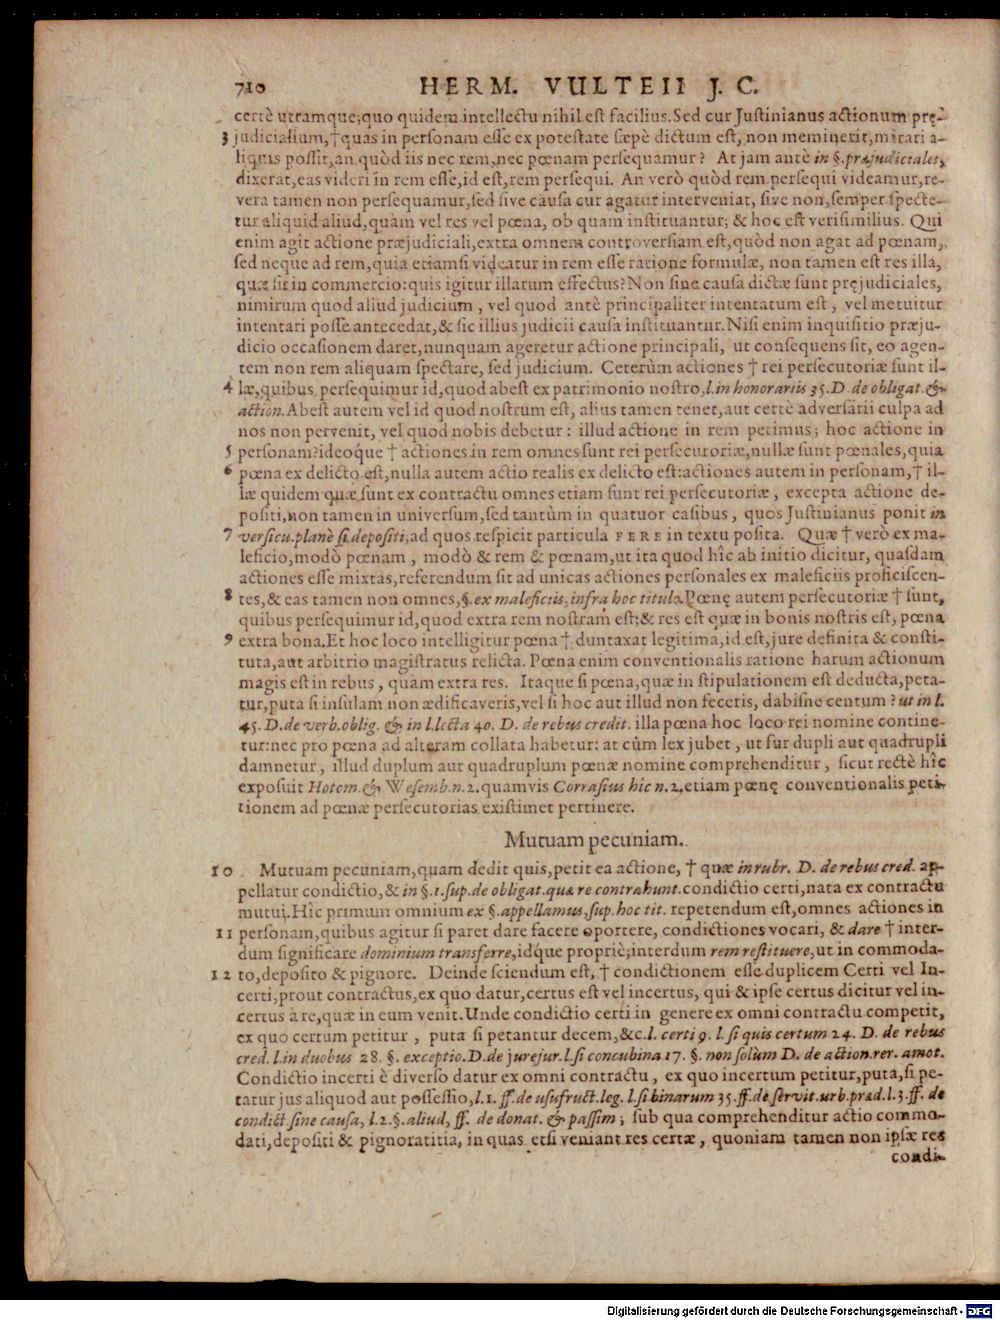 710 HERM. VULTEII J. C.
certè utramque; quo quidem intellectu nihil est facilius. Sed cur Justinianus actionum prę-
3 judicialium, † quas in personam esse ex potestate sæpè dictum est, non meminerit, mirari a-
liquis possit, an quòd iis nec rem, nec pœnam persequamur? At jam antè in §. præjudiciales,
dixerat, eas videri in rem esse, id est, rem persequi. An verò quòd rem persequi videamur, re-
vera tamen non persequamur, sed sive causa cur agatur interveniat, sive non, semper specte-
tur aliquid aliud, quàm vel res vel pœna, ob quam instituantur; & hoc est verisimilius. Qui
enim agit actione præjudiciali, extra omnem controversiam est, quòd non agat ad pœnam,
sed neque ad rem, quia etiamsi videatur in rem esse ratione formulæ, non tamen est res illa,
quæ sit in commercio: quis igitur illarum effectus? Non sine causa dictæ sunt pręjudiciales,
nimirum quod aliud judicium, vel quod antè principaliter intentatum est, vel metuitur
intentari posse antecedat, & sic illius judicii causa instituantur. Nisi enim inquisitio præju-
dicio occasionem daret, nunquam ageretur actione principali, ut consequens sit, eo agen-
tem non rem aliquam spectare, sed judicium. Ceterùm actiones † rei persecutoriæ sunt il-
4 læ, quibus persequimur id, quod abest ex patrimonio nostro, l. in honorariis 35. D. de obligat. &
action. Abest autem vel id quod nostrum est, alius tamen tenet, aut certè adversarii culpa ad
nos non pervenit, vel quod nobis debetur: illud actione in rem petimus; hoc actione in
5 personam: ideoque † actiones in rem omnes sunt rei persecutoriæ, nullæ sunt pœnales, quia
6 pœna ex delicto est, nulla autem actio realis ex delicto est: actiones autem in personam, † il-
læ quidem quæ sunt ex contractu omnes etiam sunt rei persecutoriæ, excepta actione de-
positi, non tamen in universum, sed tantùm in quatuor casibus, quos Justinianus ponit in
7 versicu. planè si depositi, ad quos respicit particula FERE in textu posita. Quæ † verò ex ma-
leficio, modò pœnam, modò & rem & pœnam, ut ita quod hîc ab initio dicitur, quasdam
actiones esse mixtas, referendum sit ad unicas actiones personales ex maleficiis proficiscen-
8 tes, & eas tamen non omnes, §. ex maleficiis, infra hoc titulo. Pœnę autem persecutoriæ † sunt,
quibus persequimur id, quod extra rem nostram est; & res est quæ in bonis nostris est, pœna
9 extra bona. Et hoc loco intelligitur pœna † duntaxat legitima, id est, jure definita & consti-
tuta, aut arbitrio magistratus relicta. Pœna enim conventionalis ratione harum actionum
magis est in rebus, quàm extra res. Itaque si pœna, quæ in stipulationem est deducta, peta-
tur, puta si insulam non ædificaveris, vel si hoc aut illud non feceris, dabisne centum? ut in l.
45. D. de verb. oblig. & in l. lecta 40. D. de rebus credit. illa pœna hoc loco rei nomine contine-
tur: nec pro pœna ad alteram collata habetur: at cùm lex jubet, ut fur dupli aut quadrupli
damnetur, illud duplum aut quadruplum pœnæ nomine comprehenditur, sicut rectè hîc
exposuit Hotom. & Wesemb. n. 2. quamvis Corrasius hîc n. 2. etiam pœnę conventionalis peti-
tionem ad pœnæ persecutorias existimet pertinere.
Mutuam pecuniam.
10 Mutuam pecuniam, quam dedit quis, petit ea actione, † quæ in rubr. D. de rebus cred. ap-
pellatur condictio, & in §. 1. sup. de obligat. qua re contrahunt. condictio certi, nata ex contractu
mutui. Hîc primum omnium ex §. appellamus, sup. hoc tit. repetendum est, omnes actiones in
11 personam, quibus agitur si paret dare facere oportere, condictiones vocari, & dare † inter-
dum significare dominium transferre, idq́ue propriè; interdum rem restituere, ut in commoda-
12 to, deposito & pignore. Deinde sciendum est, † condictionem esse duplicem Certi vel In-
certi, prout contractus, ex quo datur, certus est vel incertus, qui & ipse certus dicitur vel in-
certus à re, quæ in eum venit. Unde condictio certi in genere ex omni contractu competit,
ex quo certum petitur, puta si petantur decem, &c. l. certi 9. l. si quis certum 24. D. de rebus
cred. l. in duobus 28. §. exceptio. D. de jurejur. l. si concubina 17. §. non solùm D. de action. rer. amot.
Condictio incerti è diverso datur ex omni contractu, ex quo incertum petitur, puta, si pe-
tatur jus aliquod aut possessio, l. 1. ff. de usufruct. leg. l. si binarum 35. ff. de servit. urb. præd. l. 3. ff. de
condict. sine causa, l. 2. §. aliud, ff. de donat. & passim; sub qua comprehenditur actio commo-
dati, depositi & pignoratitia, in quas etsi veniant res certæ, quoniam tamen non ipsæ res
condi-
Digitalisierung gefördert durch die Deutsche Forschungsgemeinschaft - DFG